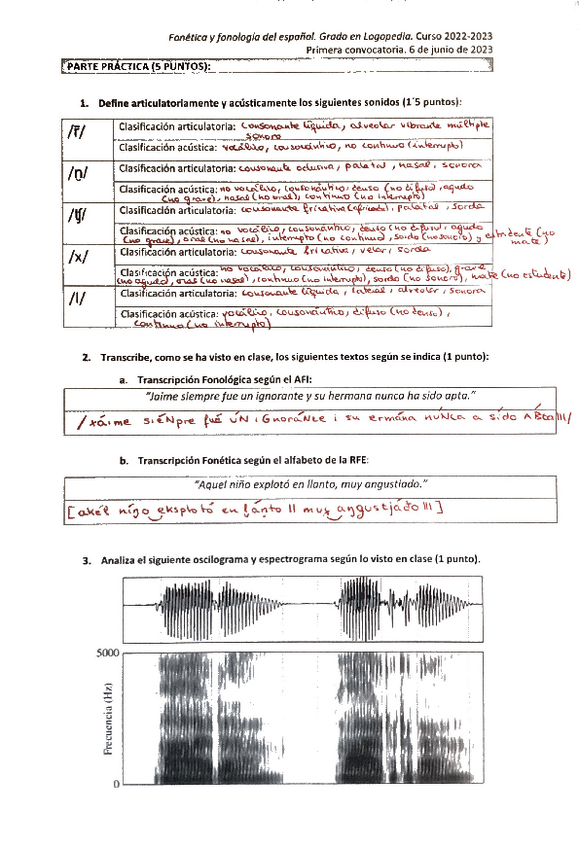 Fonética y fonología del español. Grado en Logopedia. Curso 2022-2023
Primera convocatoria. 6 de junio de 2023
PARTE PRÁCTICA (5 PUNTOS):
1. Define articulatoriamente y acústicamente los siguientes sonidos (1´5 puntos):
/r̅/
Clasificación articulatoria: consonante líquida, alveolar vibrante múltiple
sonora
Clasificación acústica: vocálico, consonántico, no continuo (interrupto)
/ṇ/
Clasificación articulatoria: consonante oclusiva, palatal, nasal, sonora
Clasificación acústica: no vocálico, consonántico, denso (no difuso), agudo
(no grave), nasal (no oral), continuo (no interrupto)
/ʧ/
Clasificación articulatoria: consonante fricativa (africada), palatal, sorda
Clasificación acústica: no vocálico, consonántico, denso (no difuso), agudo
(no grave), oral (no nasal), interrupto (no continuo), sordo (no sonoro) y estridente (no
mate)
/x/
Clasificación articulatoria: consonante fricativa, velar, sorda
Clasificación acústica: no vocálico, consonántico, denso (no difuso), grave
(no agudo), oral (no nasal), continuo (no interrupto), sordo (no sonoro), mate (no estridente)
/l/
Clasificación articulatoria: consonante líquida, lateral, alveolar, sonora
Clasificación acústica: vocálico, consonántico, difuso (no denso),
continuo (no interrupto)
2. Transcribe, como se ha visto en clase, los siguientes textos según se indica (1 punto):
a. Transcripción Fonológica según el AFI:
"Jaime siempre fue un ignorante y su hermana nunca ha sido apta."
/xáime siéNpre fué úN iGnoráNte i su ermána núNca a sído áBta|||/
b. Transcripción Fonética según el alfabeto de la RFE:
"Aquel niño explotó en llanto, muy angustiado."
3. Analiza el siguiente oscilograma y espectrograma según lo visto en clase (1 punto).
5000
Frecuencia (Hz)
0